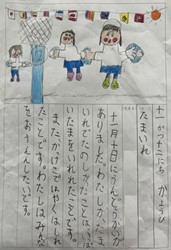 十一がつ十二にち かようび
たまいれ
十一月十日にうんどうかいが
ありました。わたしがたま
いれでたのしかったことは、は
いたまをいれれたことです。
またかけごえではやくはいれ
たことです。わたしはみんな
をおうえんしたいです。